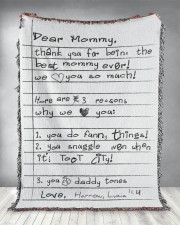 Dear Mommy,
thank you for being the
best mommy ever!
we ♡ you so much!
Here are 3 reasons
why we ♥ you:
1. you do fann, things!
2. you snaggle wen when
it's TooT
3. you daddy tones
Love,